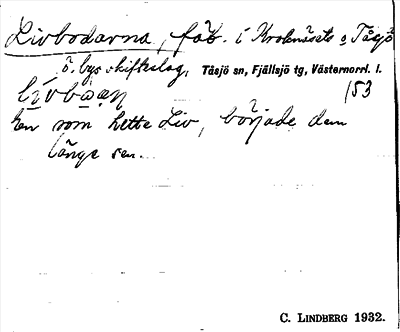 Livbodarna, fäb. i Kroknäsets o Tåsjö
ö. bys skifteslag, Tåsjö sn, Fjällsjö tg, Västernorrl. l.
153
En som hette Liv, började dem
länge sen.
C. LINDBERG 1932.